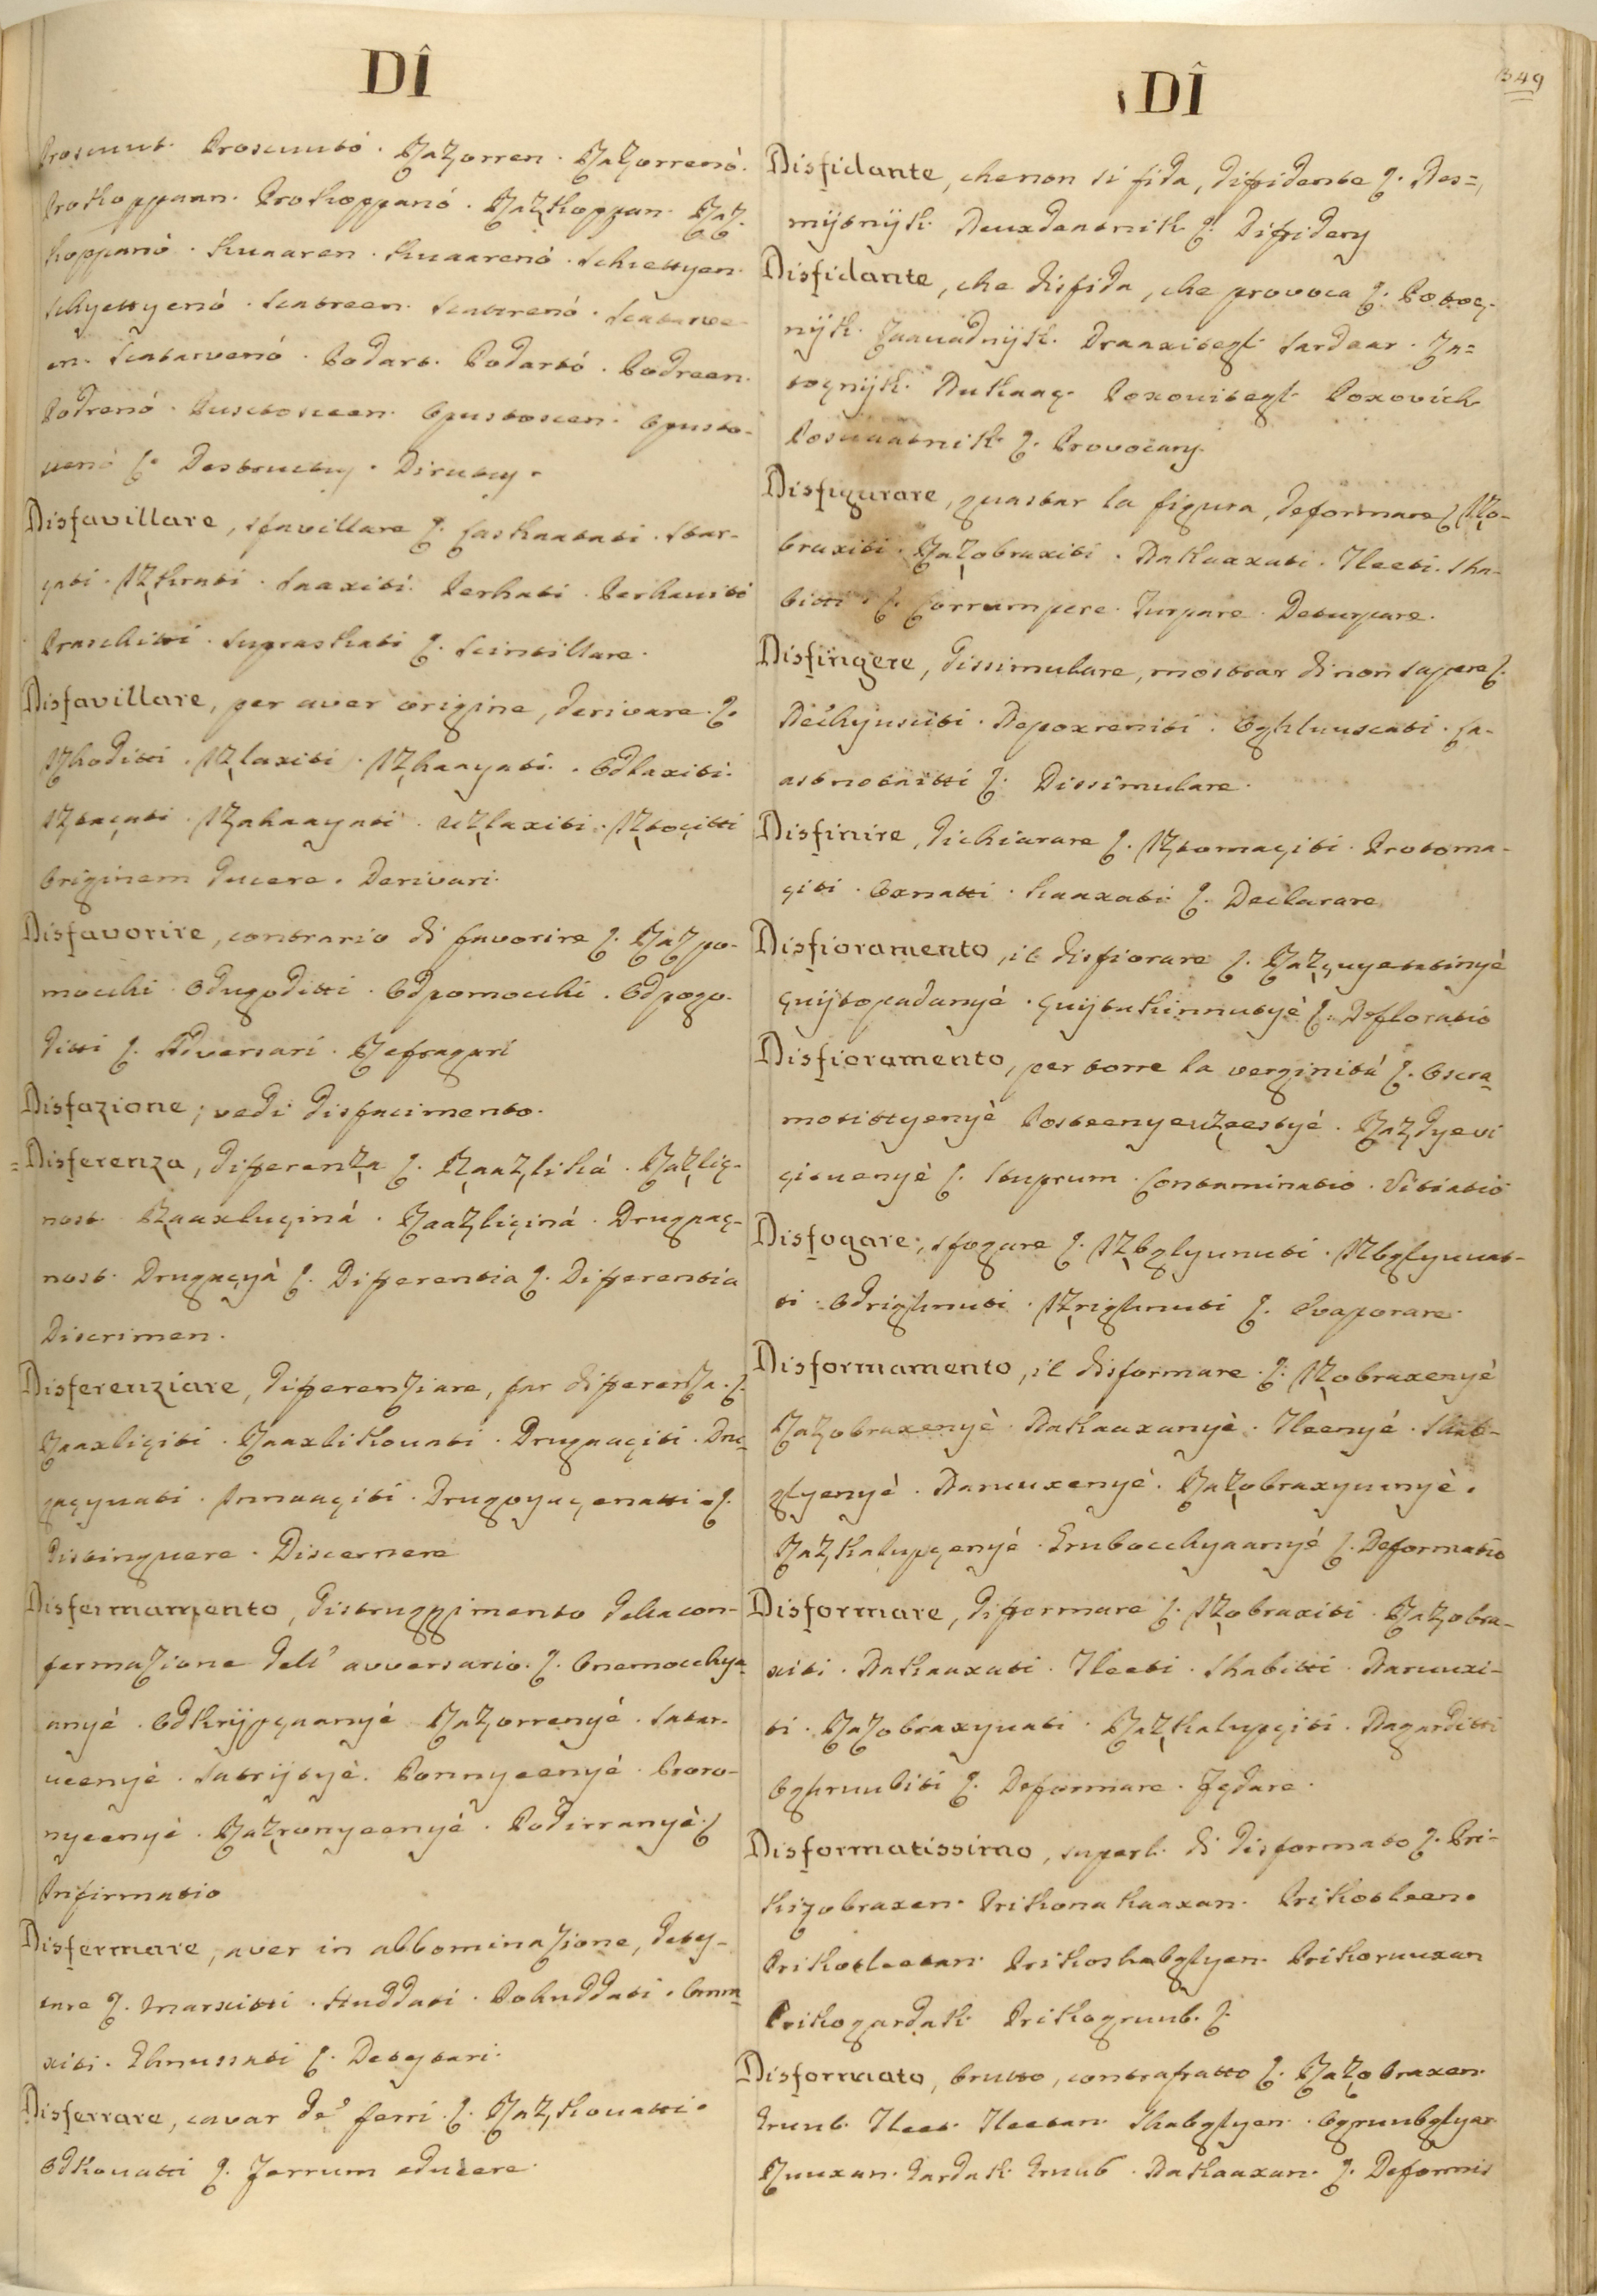 DÎ
Proscuut. Proscuutó. Razorren. Razorrenó.
Prokoppaan. Prokoppanó. Razkoppan. Raz-
koppanó. Kuaaren. Kuaarenó. Schiettyen.
Schyettyenó. Scatreen. Scatrenó. Scatarve-
en. Scatarvenó. Podart. Podartó. Podreen.
Podrenó. Opustoscen. Opusto-
Destructus. Dirutus.
Disfavillare, sfavillare ʃ. Iaskaatati. Star-
çati. Izkrati. Saaxiti. Perhati. Perhauiti
Praschitti. Supraskati ʃ. Scintillare.
Disfavillare, per aver origine, derivare. ʃ.
Izhoditti. Izlaxiti. Izhaayati. Odlaxiti.
Iztaçati. Izahaayati. uzlaxiti. Iztoçitti
Originem ducere. Derivari.
Disfavorire, contrario di favorire ʃ. Razpo-
mocchi. Odugoditti. Odpomocchi. Odpogo-
ditti ʃ. Adversari. Refragari
Disfazione; vedi disfacimento.
Disferenza, diferenza ʃ. Raazlikà. Razliç-
nost. Raaxluçinà. Raazliçinà. Drugpaç-
nost. Drugaçyà ʃ. Differentia ʃ. Differentia
Discrimen.
Disferenziare, diferenziare, far diferenza. ʃ.
Raaxliçiti. Raaxlikouati. Drugaçiti. Dru-
gaçyuati. Innaaçiti. Drugoyaçenatti. ʃ.
Distinguere. Discernere
Disfermamento, distruggimento della con-
fermazione dell' avversario. ʃ. Onemocchya-
anyé. Odkrijpgaanyé Razorrenyé. Satar-
ueenyè. Satrijtyè. Ponnyeenyé. Poro-
nyeenyé. Razronyeenyé. Podirranyè. ʃ
Infirmatio
Disfermare, aver in abbominazione, detes-
tare ʃ. Marxitti. Huddati. Pohuddati. Omra-
xiti. Ghnussati ʃ. Detestari.
Disferrare, cavar de' ferri. ʃ. Razkouatti.
Odkouatti ʃ. Ferrum educere.
DÎ
349
Disfidante, che non si fida, difidente ʃ. Nes-
mijtnijk. Neuxdaatnik ʃ. Difidens
Disfidante, che disfida, che provoca ʃ. Potoç-
nijk. Zaauadnijk. Draaxitegl. Sardaar. Za-
toçnijk. Nukaaç. Poxouitegl. Poxovich
Posuaatnik ʃ. Provocans.
Disfigurare, guastar la figura, deformare ʃ Izo-
braxiti. Razobraxiti. Nakaaxati. Tleeti. Sha-
bitti. ʃ. Corrumpere. Turpare. Deturpare.
Disfingere, dissimulare, mostrar di non sapere ʃ.
Nechyusciti. Nepoxreniti. Oghluuscati. Ça-
astnotaitti ʃ. Dissimulare.
Disfinire, dichiarare ʃ. Iztomaçiti. Protoma-
çiti. Oxnatti. Kaaxati. ʃ. Declarare.
Disfioramento, il disfiorare ʃ. Razçuyetatinyè
Çuijtopadanyé. Çuijtukinnutyè ʃ. Defloratio
Disfioramento, per torre la verginitá ʃ. Oscra-
motittyenyè Posteenyeuzeestyé. Razdyevi
çituenyè ʃ. Stuprum. Contaminatio. Vitiatio
Disfogare, sfogare ʃ. Izbglyunuti. Izbglyuuat-
ti. Odrighnuti. Izrighnuti ʃ. Evaporare.
Disformamento, il disformare. ʃ. Izobraxenyé
Razobraxenyè. Nakaaxanyè. Tleenyé. Shab-
glyenyé. Naruuxenyé. Razobraxyuunyè.
Razkalupçenyé. Grubocchyaanyé ʃ. Deformatio
Disformare, difformare ʃ. Izobraxiti. Razobra-
xiti. Nakaaxati. Tleeti. Shabitti. Naruuxi-
ti. Razobraxyuati. Razkalupçiti. Nagarditti
Oghruubiti ʃ. Deformare. Fędare.
Disformatissimo, superl. di disformato ʃ. Pri-
kizobraxen. Prikonakaaxan. Prikotleen.
Prikotleetan. Prikoshabglyen. Prikoruuxan
Prikogardak. Prikogruub. ʃ.
Disformato, brutto, contrafatto ʃ. Razobraxen.
Gruub. Tleet. Tleetan. Shabglyen. Ogruubglyen
Ruuxan. Gardak. Gruub. Nakaaxan. ʃ. Deformis